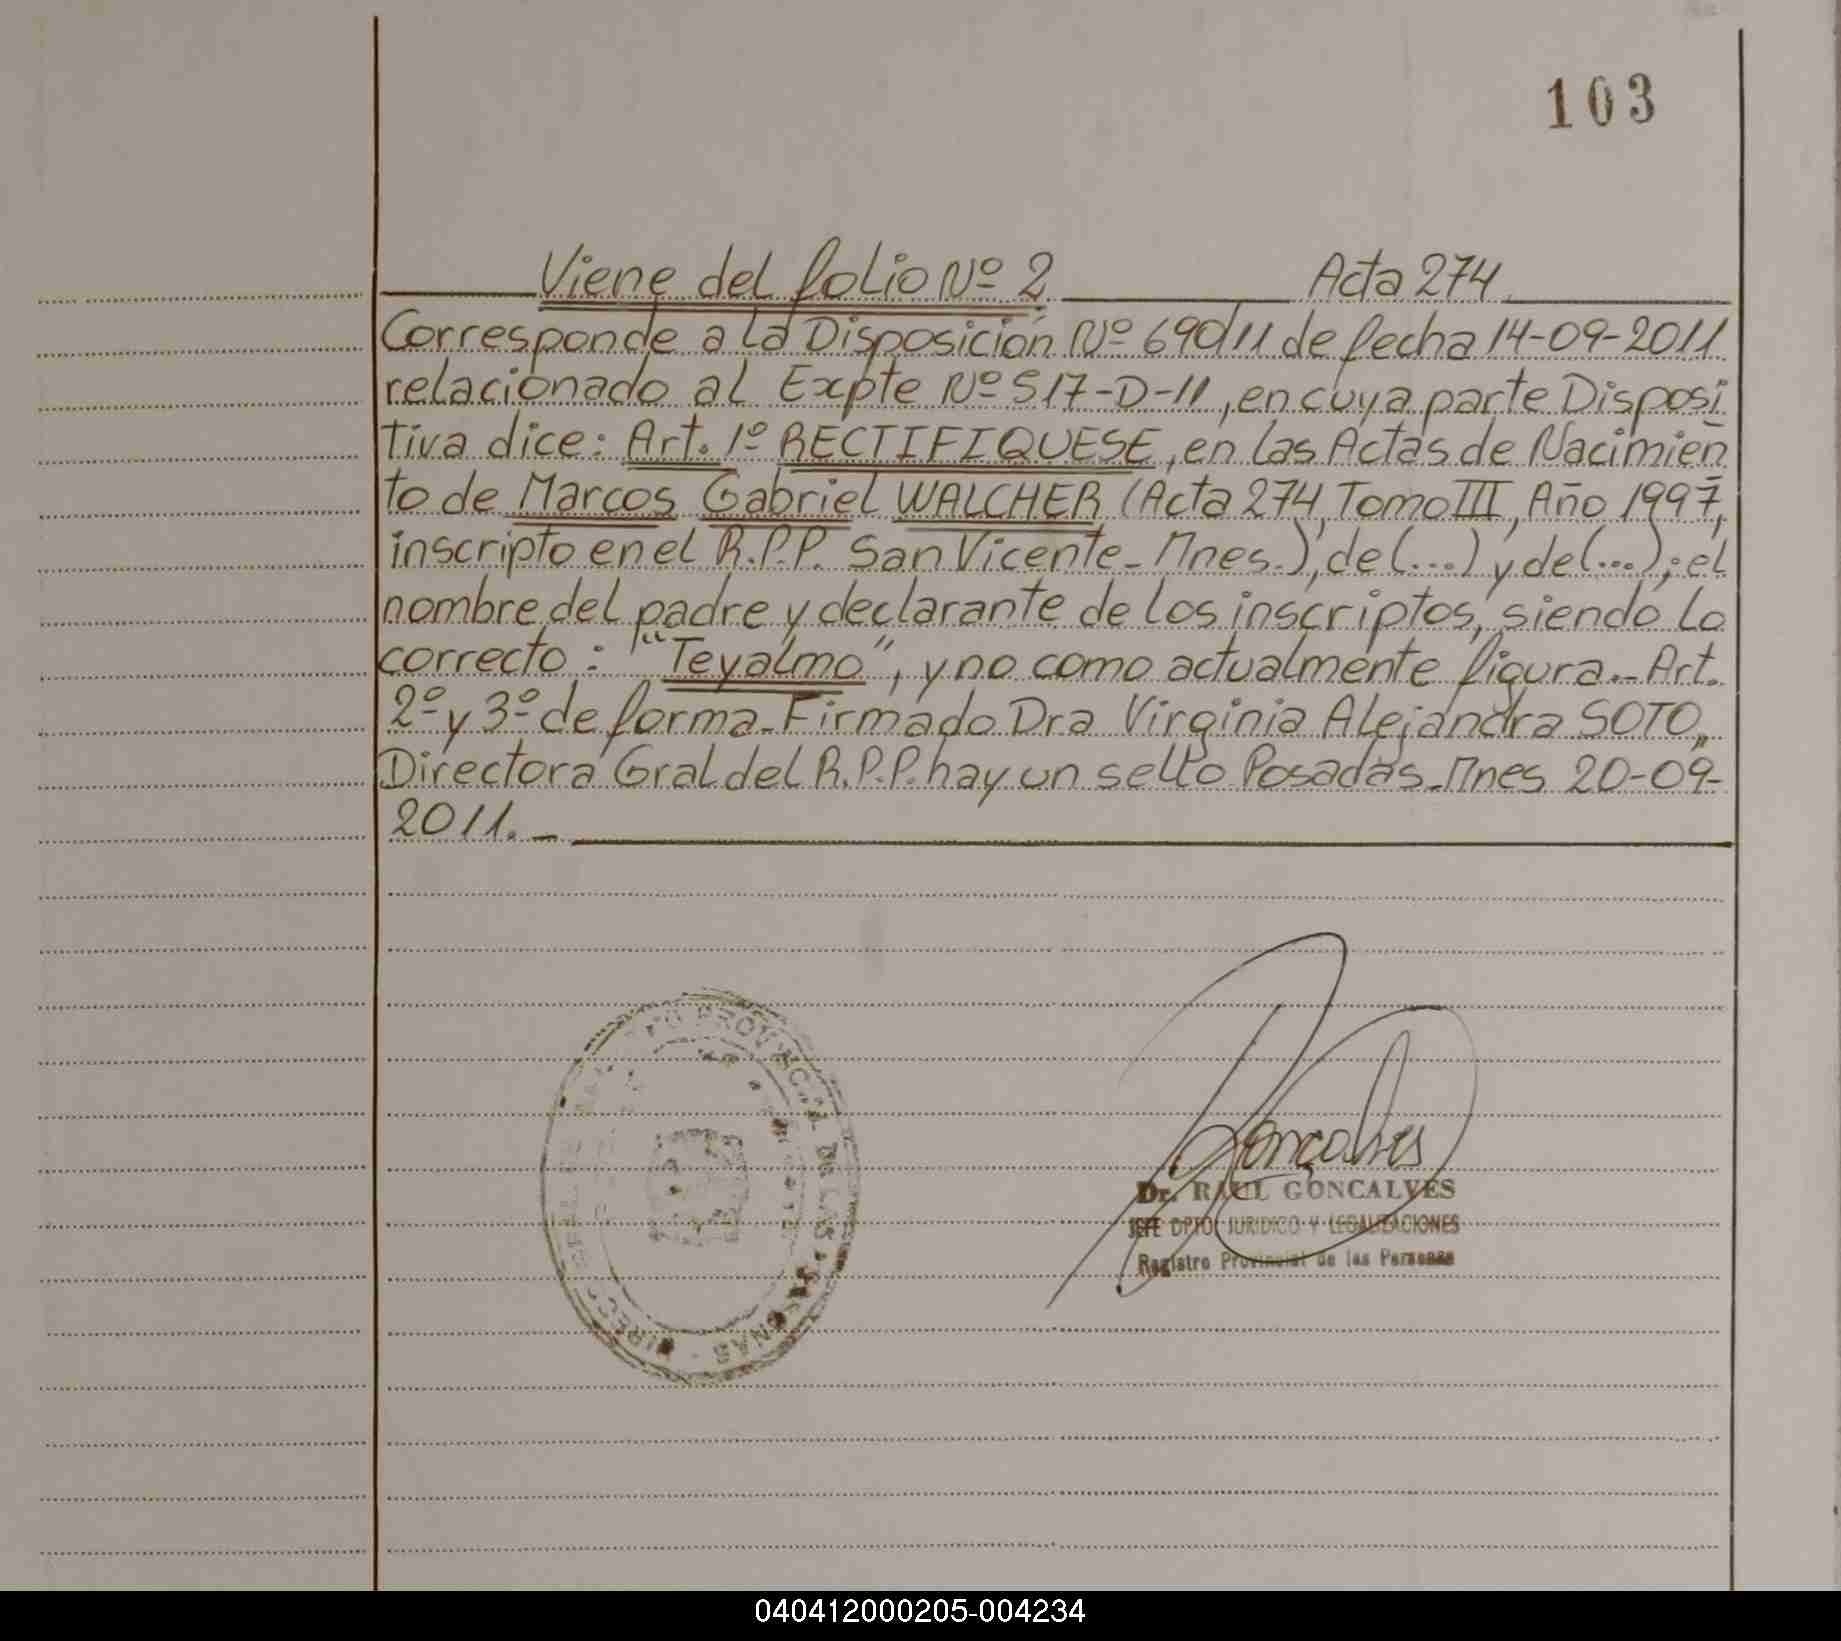 103
Viene del folio Nº 2 Acta 274
Corresponde a la Disposición Nº 690/11 de fecha 14-09-2011
relacionado al Expte Nº 517-D-11, en cuya parte Disposi
tiva dice: Art. 1º RECTIFIQUESE, en las Actas de Nacimien
to de Marcos Gabriel WALCHER (Acta 274, Tomo III, Año 1997,
inscripto en el R.P.P. San Vicente - Mnes.), de (...) y de (...); el
nombre del padre y declarante de los inscriptos, siendo lo
correcto: "Teyalmo", y no como actualmente figura.- Art.
2º y 3º de forma - Firmado Dra Virginia Alejandra SOTO,,
Directora Gral del R.P.P. hay un sello Posadas - Mnes 20-09-
2011. -
PROVINCIAL DE LAS PERSONAS
Goncalves
Dr. RAUL GONCALVES
JEFE DPTO. JURIDICO Y LEGALIZACIONES
Registro Provincial de las Personas
040412000205-004234